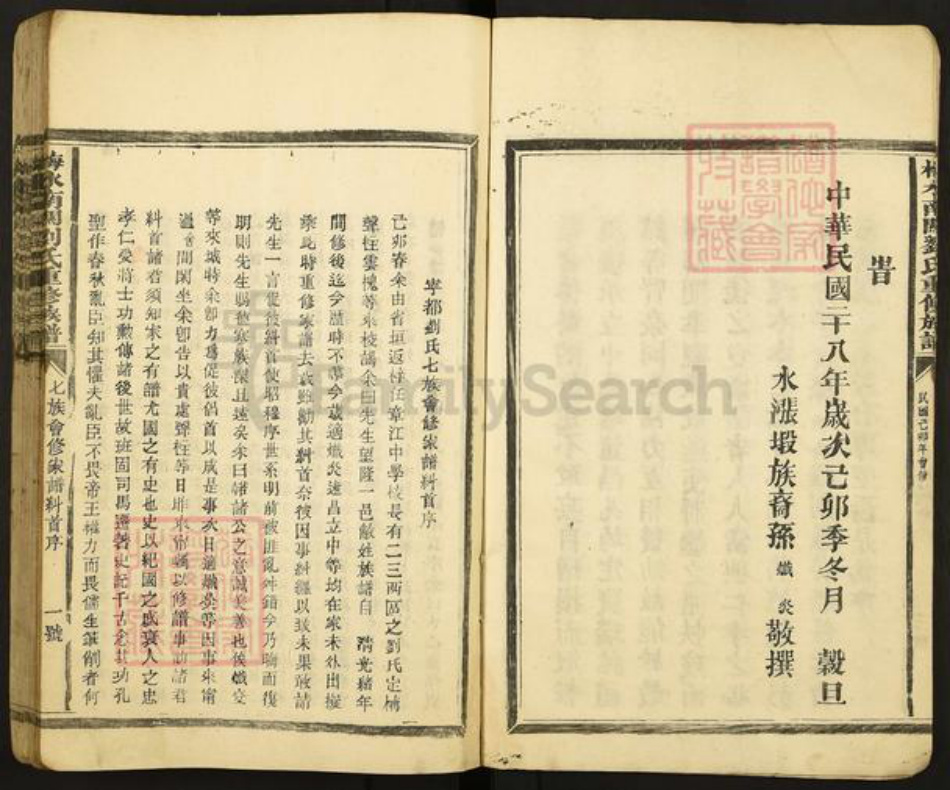 梅水南關劉氏重修族譜
民國己卯年會修
旹
中華民國二十八年歲次己卯季冬月 穀旦
永漲塅族裔孫 熾炎 敬撰
寧都劉氏七族會修家譜科首序
己卯春余由省垣返梓任章江中學校長有二三兩區之劉氏定構
聲柱雲槐等來校謁余曰先生望隆一邑敝姓族譜自 清光緒年
間修後迄今歷時不等今歲適熾炎遠昌立中等均在家未外出擬
乘此時重修家譜去歲雖勸其科首奈彼因事糾纏以致未果敢請
先生一言促彼科首使昭穆序世系明前彼匪亂舛錯今乃論而復
明則先生賜敝寒族深且遠矣余曰諸公之意誠美善也俟熾炎
等來城特余卽力爲促彼侶首以成是事次日適熾炎等因事來甯
過 間閑坐余卽告以貴處聲柱等日昨來鄙寓以修譜事訪諸君
科首諸君須知家之有譜尤國之有史也史以紀國之盛衰人之忠
孝仁愛將士功勲傳諸後世故班固司馬遷著史記千古念其功孔
聖作春秋亂臣知其懼夫亂臣不畏帝王權力而畏儒生筆削者何
梅水南關劉氏重修族譜
七族會修家譜科首序
一號
FamilySearch